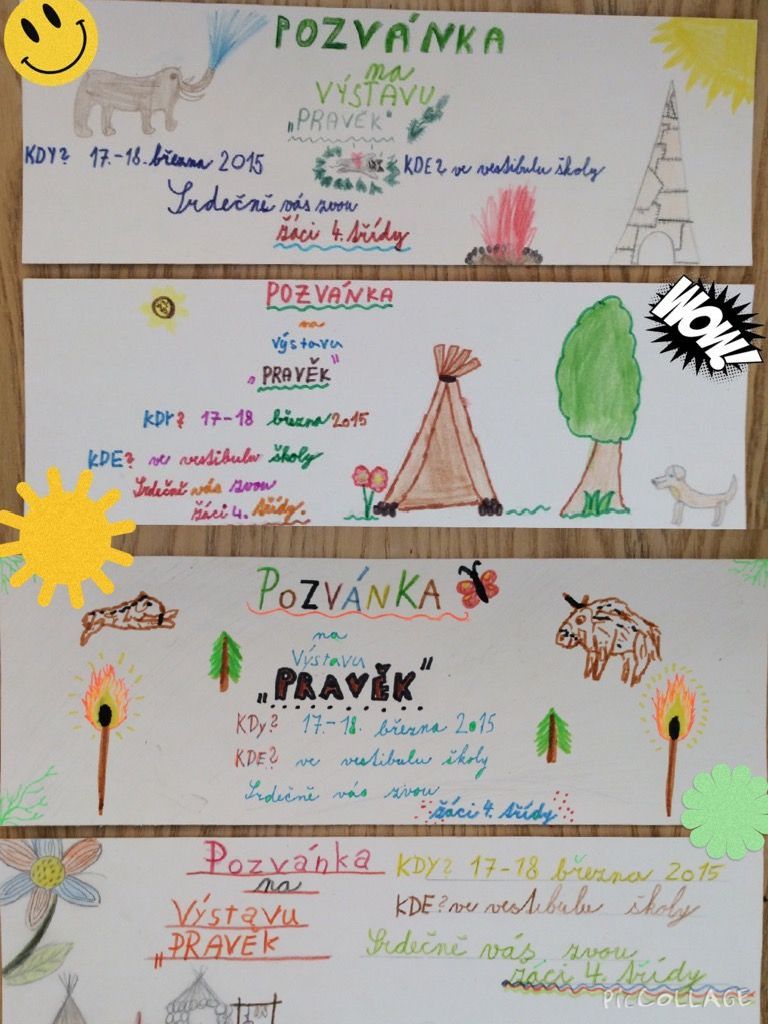 POZVÁNKA
na
VÝSTAVU
„PRAVĚK"
KDY? 17.-18. března 2015 KDE? ve vestibulu školy
Srdečně vás zvou
žáci 4. třídy
POZVÁNKA
na
výstavu
„PRAVĚK"
KDY? 17-18 března 2015
KDE? ve vestibulu školy
Srdečně vás zvou
žáci 4. třídy.
WOW!
POZVÁNKA
na
Výstavu
„PRAVĚK"
KDy? 17.-18. března 2015
KDE? ve vestibulu školy
Srdečně vás zvou
žáci 4. třídy
Pozvánka
na
Výstavu
„PRAVĚK
KDY? 17-18 března 2015
KDE? ve vestibulu školy
Srdečně vás zvou
žáci 4. třídy
PIC COLLAGE